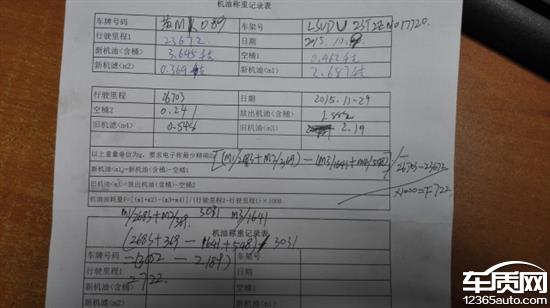 机油称重记录表
车牌号码 车架号
行驶里程1 23672 日期 2015.10.9
新机油(含桶) 3.645 空桶1 0.962
新机滤(m2) 0.369 新机油(m1) 2.683
行驶里程 26703 日期 2015.11-29
空桶2 0.241 放出机油(含桶) 1.882
旧机滤(m4) 0.548 旧机油(m3) 2.19
以上重量单位为g，要求电子称最少精确
[(m1/2683+m2/369)-(m3/1641+m4/548)]/26703-23672
新机油(m1)=新机油(含桶)-空桶1
旧机油(m3)=放出机油(含桶)-空桶2
X1000=F722
机油油耗量F=[(m1+m2)-(m3+m4)]/(行驶里程2-行驶里程1)×1000
m1/2683+m2/369. 3031 m3/1641
机油称重记录表
(2683+369-1641+548)/3031
车牌号码 车架号
- 2.189)
行驶里程1 日期
新机油(含桶) 空桶1
新机滤(m2) 新机油(m1)
车质网
12365auto.com